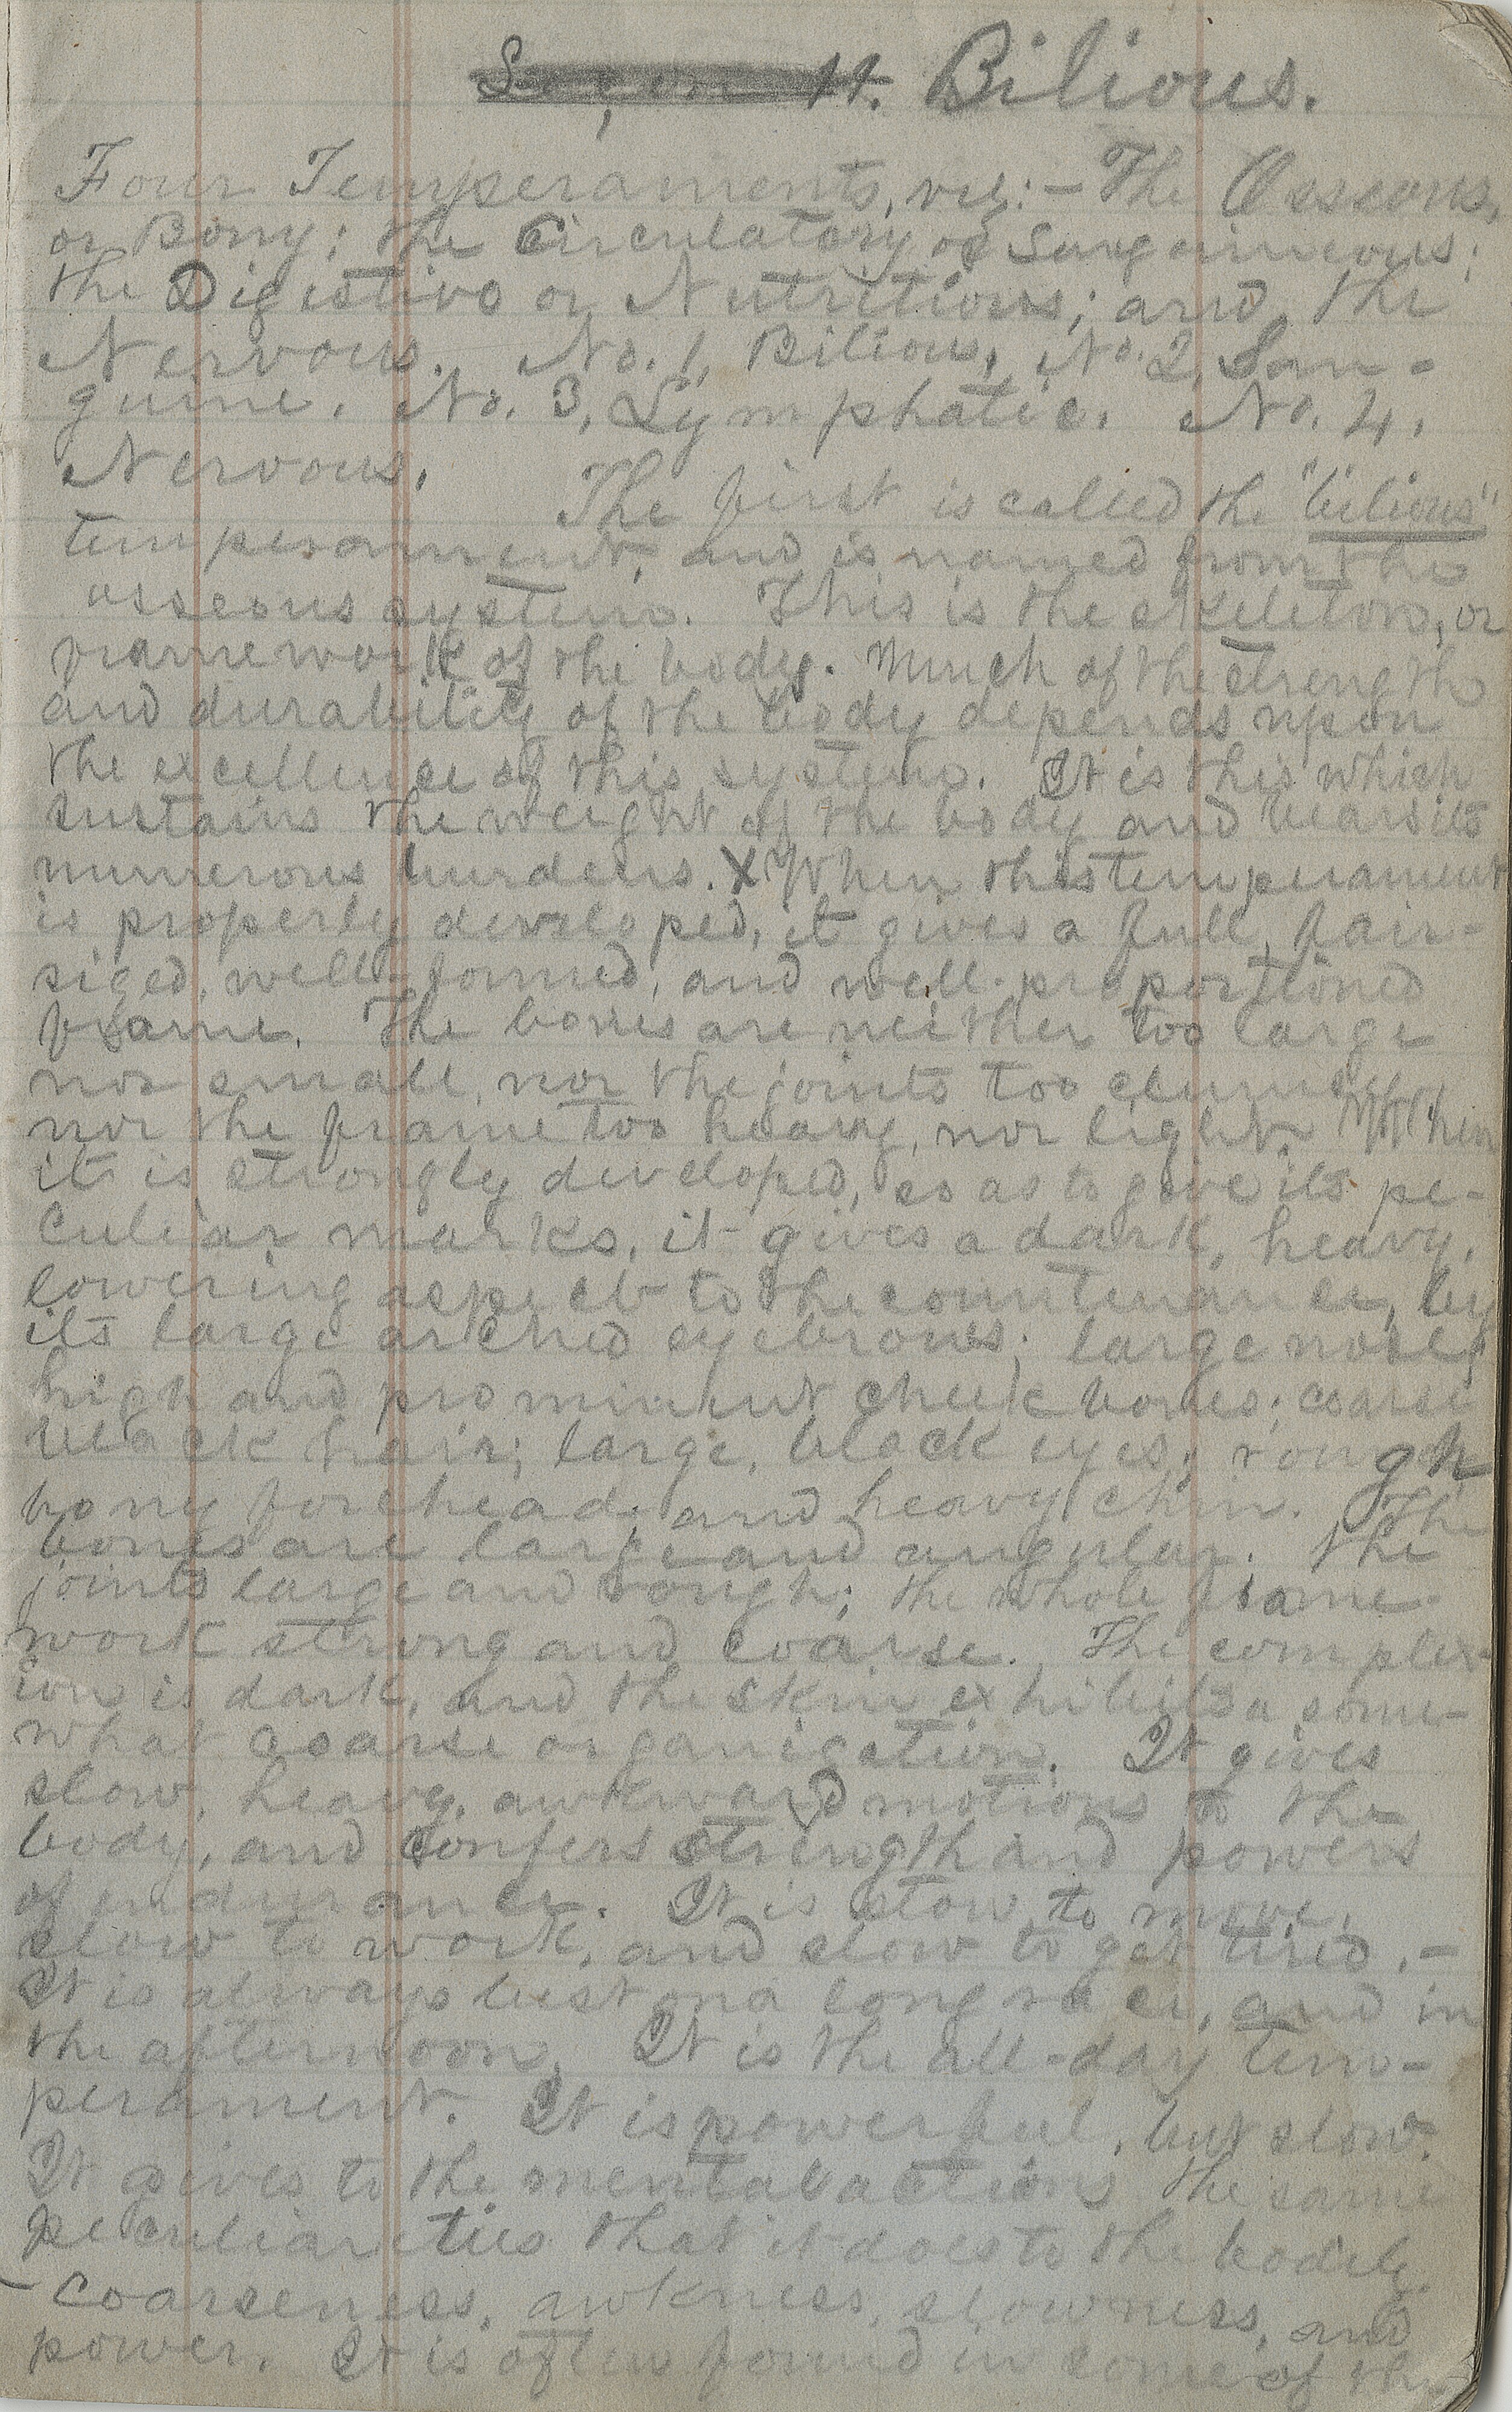 11. Bilious.
Four Temperaments, viz:- The Osseous,
or Bony; the Circulatory or Sanguineous;
the Digestive or Nutritious; and the
Nervous. No. 1, Bilious, No. 2, San-
guine. No. 3, Lymphatic. No. 4.
Nervous.
The first is called the "bilious"
temperament, and is named from the
osseous system. This is the skeleton, or
framework of the body. Much of the strength
and durability of the body depends upon
the excellence of this system. It is this which
sustains the weight of the body and bears its
numerous burdens. X When this temperament
is properly developed, it gives a full, fair-
sized, well-formed, and well-proportioned
frame. The bones are neither too large
nor small, nor the joints too clumsy,
nor the frame too heavy, nor light. When
it is strongly developed, so as to give its pe-
culiar marks, it gives a dark, heavy,
lowering aspect to the countenance, by
its large arched eyebrows; large nose;
high and prominent cheek bones; coarse
black hair; large, black eyes; rough
bony forehead; and heavy chin. The
bones are large and angular. the
joints large and rough; the whole frame-
work strong and coarse. The complex-
ion is dark, and the skin exhibits a some-
what coarse organization. It gives
slow, heavy, awkward motions to the
body, and confers strength and powers
of endurance. It is slow to move,
slow to work, and slow to get tired. -
It is always best on a long race, and in
the afternoon. It is the all-day tem-
perament. It is powerful, but slow.
It gives to the mental actions the same
peculiarities that it does to the bodily.
- Coarseness, awkness, slowness, and
power. It is often found in some of the